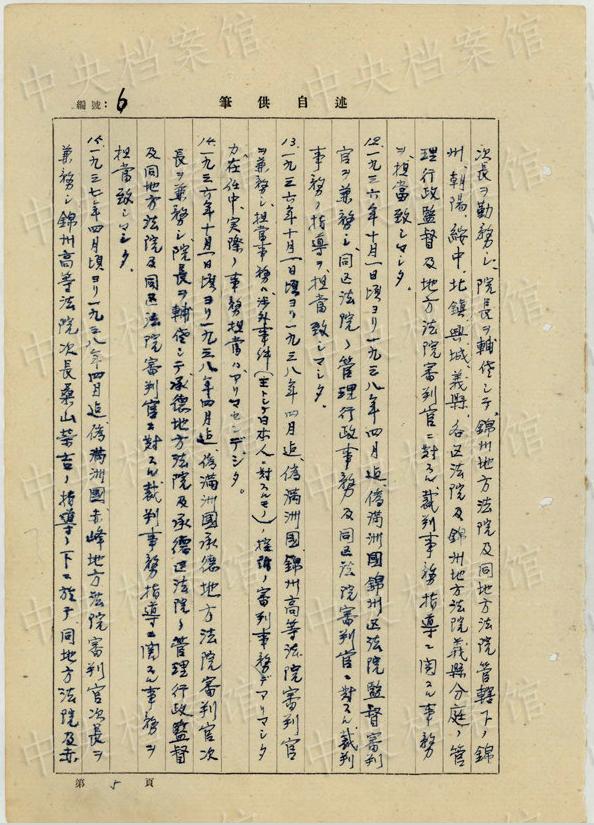 編號：6
筆供自述
次長ヲ勤務シ、院長ヲ輔佐シテ、錦州地方法院及同地方法院管轄下ノ錦
州、朝陽、綏中、北鎮、興城、義縣、各区法院及錦州地方法院義縣分庭ノ管
理行政監督及地方法院審判官ニ対スル裁判事務指導ニ関スル事務
ヲ担當致シマシタ。
12.一九三六年十月一日頃ヨリ一九三八年四月迠、偽満洲國錦州区法院監督審判
官ヲ兼務シ、同区法院ノ管理行政事務及同区法院審判官ニ対スル裁判
事務ノ指導ヲ担當致シマシタ。
13.一九三六年十月一日頃ヨリ一九三八年四月迠、偽満洲國、錦州高等法院審判官
ヲ兼務シ、担當事務ハ渉外事件(主トシテ日本人ニ対スルモノ)、控訴ノ審判事務デアリマシタ
ガ在任中、実際ノ事務担當ハアリマセンデシタ。
14.一九三六年十月一日頃ヨリ一九三八年四月迠偽満洲國承德地方法院審判官次
長ヲ兼務シ、院長ヲ輔佐シテ承德地方法院及承德区法院ノ管理行政監督
及同地方法院及同区法院審判官ニ対スル裁判事務指導ニ関スル事務ヲ
担當致シマシタ。
15.一九三七年四月頃ヨリ一九三八年四月迠偽満洲國赤峰地方法院審判官次長ヲ
兼務シ錦州高等法院次長桑山榮吉ノ指導ノ下ニ於テ同地方法院及赤
第5頁
中央档案馆